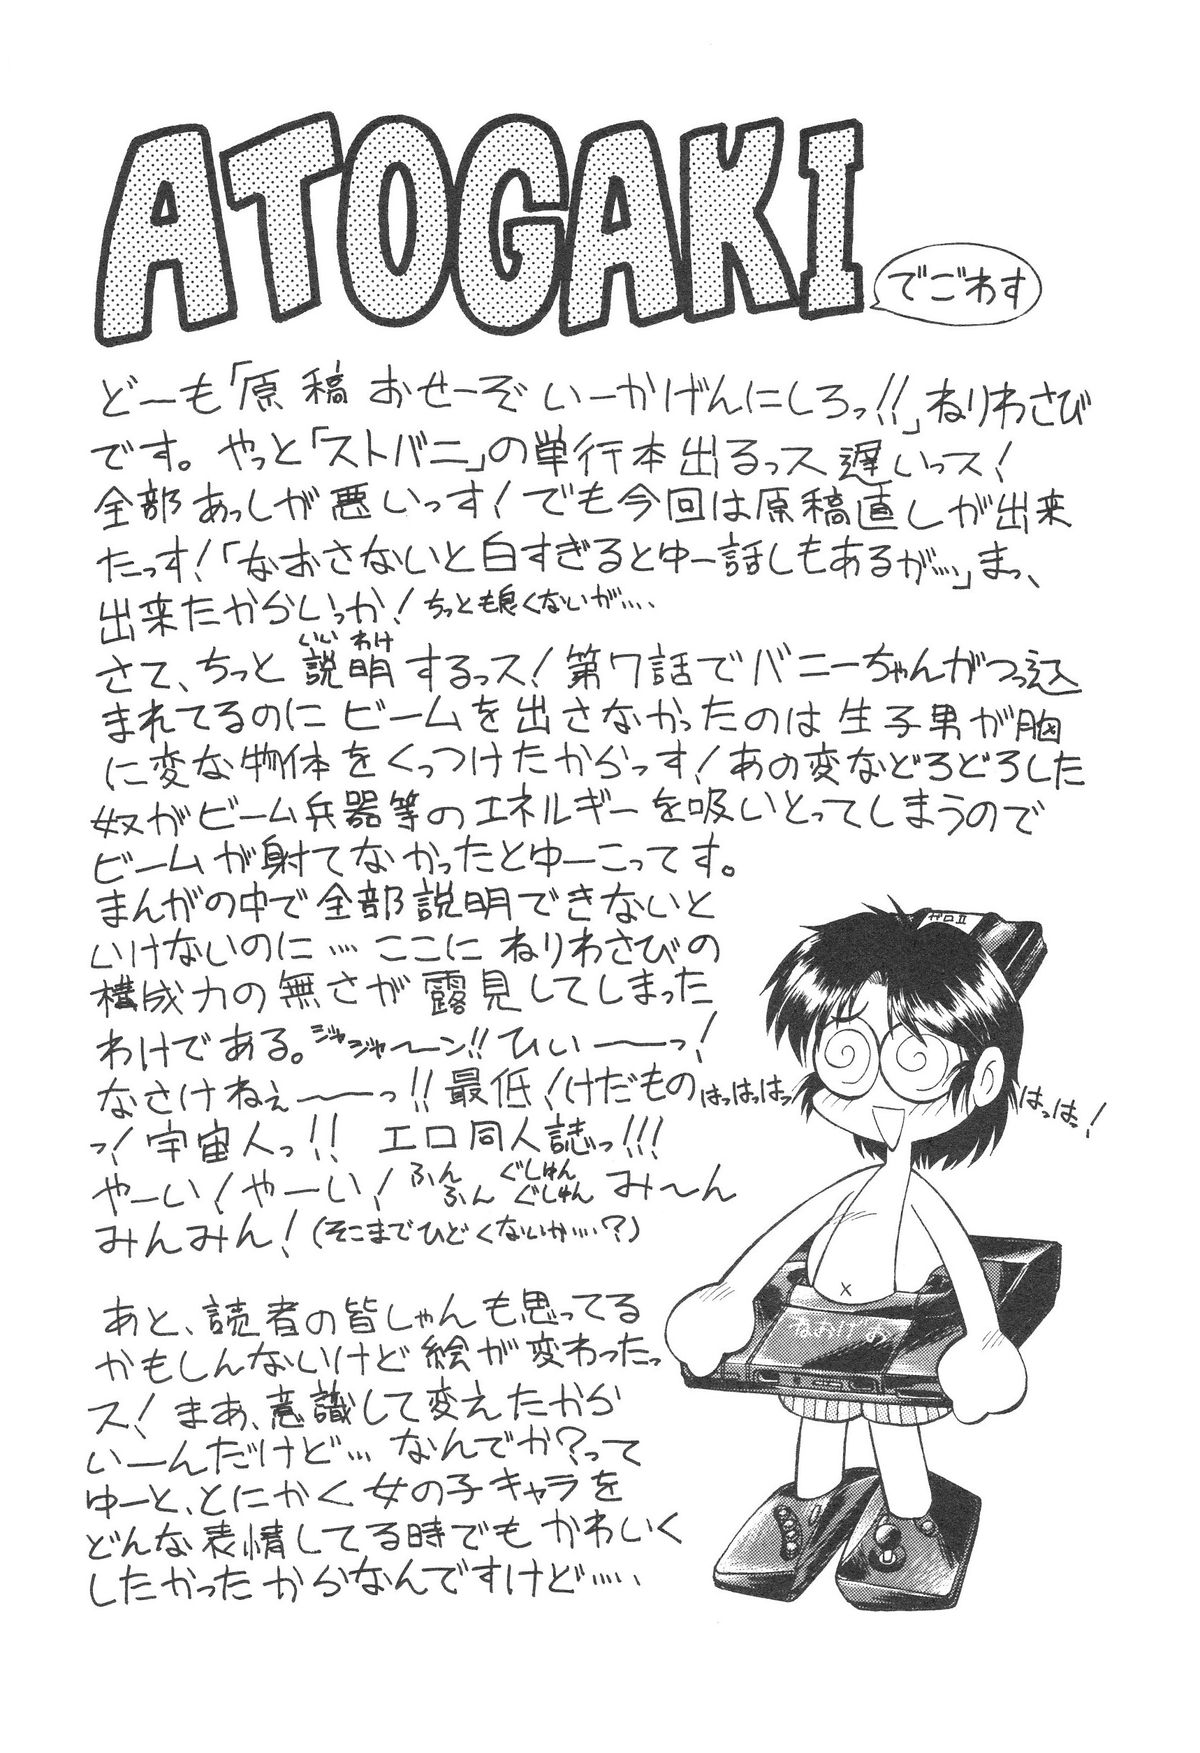 ATOGAKI
でごわす
どーも「原稿 おせーぞ いーかげんにしろっ!!」ねりわさび
です。やっと「ストバニ」の単行本出るっス遅いっス!
全部あっしが悪いっす!でも今回は原稿直しが出来
たっす!「なおさないと白すぎるとゆー話しもあるが…」まっ、
出来たからいっか!ちっとも良くないが….
いい わけ
さて、ちっと説明するっス!第7話でバニーちゃんがつっ込
まれてるのにビームを出さなかったのは生子男が胸
に変な物体をくっつけたからっす!あの変などろどろした
奴がビーム兵器等のエネルギーを吸いとってしまうので
ビームが射てなかったとゆーこってす。
まんがの中で全部説明できないと
いけないのに…ここにねりわさびの
構成力の無さが露見してしまった
わけである。ジャジャ〜ーン!!ひぃー〜ーっ!
なさけねぇー〜ーっ!!最低!けだもの
っ!宇宙人っ!! エロ同人誌っ!!!
やーい!やーい!ふんふん ぐしゅんぐしゅん み〜ん
みんみん!(そこまでひどくないか….?)
はっはっはっ
はっはっ!
ゼロII
なおけの
あと、読者の皆しゃんも思ってる
かもしんないけど絵が変わったっ
ス!まあ、意識して変えたから
いーんだけど…なんでか?って
ゆーと、とにかく女の子キャラを
どんな表情してる時でもかわいく
したかったからなんですけど…..